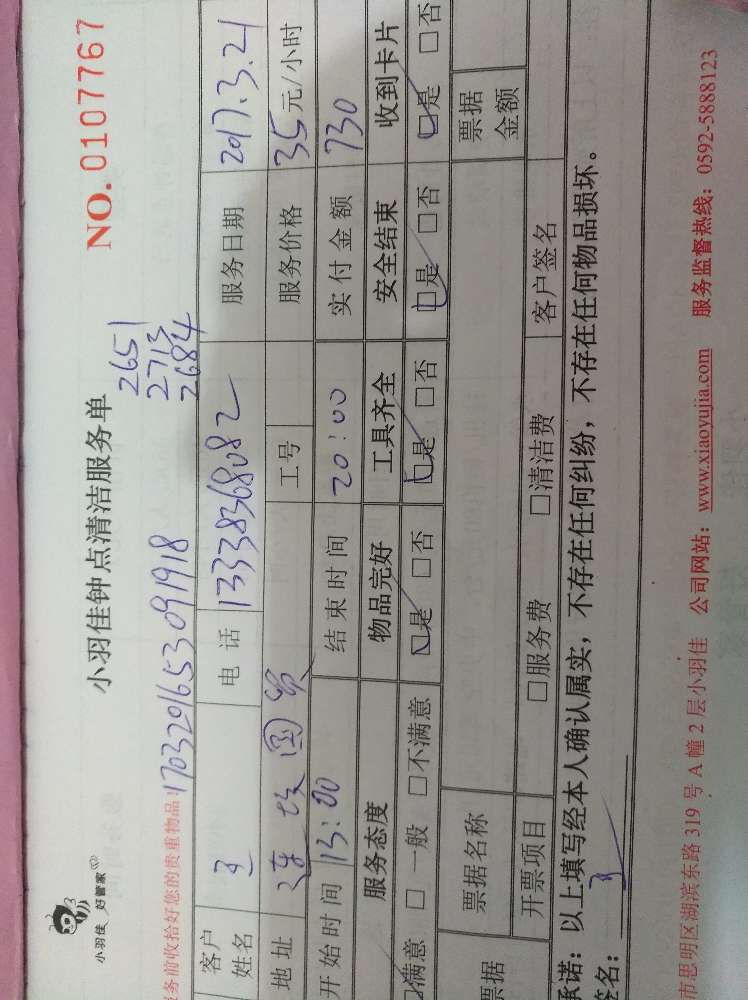 小羽佳 好管家
小羽佳钟点清洁服务单
NO. 0107767
服务前收拾好您的贵重物品!
1703201653091918
2651
2713
2684
客户姓名 王 电话 13338368082 服务日期 2017.3.21
地址 工号 服务价格 35元/小时
开始时间 13:00 结束时间 20:00 实付金额 730
服务态度 物品完好 工具齐全 安全结束 收到卡片
满意 □一般 □不满意 □是 □否 □是 □否 □是 □否 □是 □否
票据 票据名称 票据金额
开票项目 □服务费 □清洁费 客户签名
承诺：以上填写经本人确认属实，不存在任何纠纷，不存在任何物品损坏。
签名：
市思明区湖滨东路 319 号 A 幢 2 层小羽佳 公司网站：www.xiaoyujia.com 服务监督热线：0592-5888123